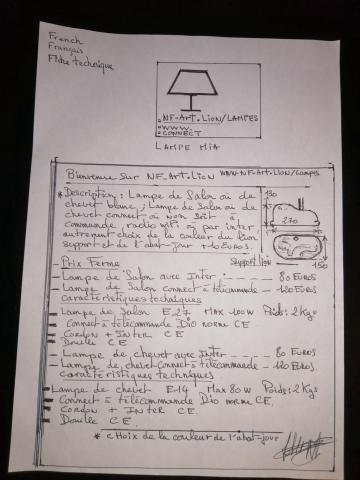 French
Français
Fiche technique
NF-Art.Lion/LAMPES
WWW.
CONNECT
LAMPE MIA
Bienvenue Sur NF.Art.Lion WWW.NF-Art.Lion/Lampes
* Description : Lampe de Salon où de
chevet blanc ; Lampe de Salon où de
chevet connect où non soit à
commande radio wifi où par inter
autrement choix de la couleur du lion
support et de l'abat-jour +10 Euros.
130
270
150
Support lion
Prix Ferme
Lampe de Salon avec Inter - - - 80 Euros
Lampe de Salon connect à télécommande - 120 Euros
caractéristiques techniques
Lampe de Salon E27 Max 100W Poids: 2Kgs
Connect à télécommande Dio norme CE
Cordon + INTER CE
Douille CE
Lampe de chevet avec Inter - - - 80 Euros
Lampe de chevet Connect à télécommande - 120 Euros.
caractéristiques techniques
Lampe de chevet E14 Max 80W Poids: 2Kgs
Connect à télécommande Dio norme CE.
Cordon + INTER CE
Douille CE.
* choix de la couleur de l'abat-jour